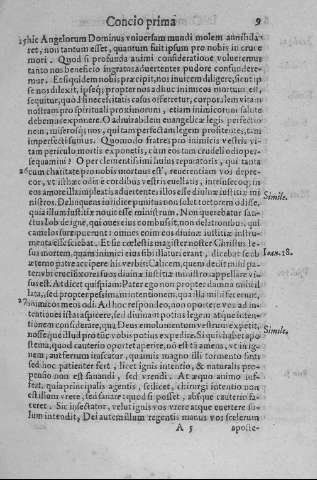 Concio prima 9
25 hic Angelorum Dominus vniuersam mundi molem annihila
ret, non tantum esset, quantum fuit ipsum pro nobis in cruce
mori. Quod si profunda animi consideratione volueremus
tanto nos beneficio ingratos aduertentes pudore confundere-
mur. Et siquidem nobis præcipit, nos inuicem diligere, sicut ip
se nos dilexit, ipseq; propter nos adhuc inimicos mortuus est,
sequitur, quòd si necessitatis casus offerretur, corporalem vitam
nostram pro spirituali proximorum, etiam inimicorum salute
debemus exponere. O admirabilem euangelicæ legis perfectio
nem, miserosq; nos, qui tam perfectam legem profitentes, tam
imperfecti sumus. Quomodo fratres pro inimicis vestris vi-
tam periculo mortis exponetis, cum eos tam crudeli odio per-
sequamini? O per clementissimi huius reparatoris, qui tanta
26 cum charitate pro nobis mortuus est, reuerentiam vos depre-
cor, vt isthæc odia è cordibus vestris euellatis, intrinsecoq; in
eos amore illam pleatis aduertentes illos esse diuinæ iustitiæ mi
nistros. Delinquens iu iudice punitus non solet tortorem odisse, Simile.
quia illum iustitiæ nouit esse ministrum. Non querebatur san-
ctus Iob de igne, qui oues eius combussit, non de latronibus, qui
camelos surripuerunt: omnes enim eos diuinæ iustitiæ instru-
menta esse sciebat. Et sic cœlestis magister noster Christus Ie-
sus mortem, quam inimici eius sibi illaturi erant, dicebat se ab Ioan. 18.
æterno patre accipere his verbis: Calicem, quem dedit mihi pa-
ter: vbi crucifixores suos diuinæ iustitiæ ministros appellare vi-
sus est. At dicet quispiam: Pater ego non propter damna mihi il
lata, sed propter pessimam intentionem, qua illa mihi fecerunt,
27 inimicos meos odi. Ad hoc respondeo, non oportere vos ad in-
tentiones istas aspicere, sed diuinam potius legem atque inten-
tionem considerare, qua Deus emolumentum vestrum expetit,
nosseque illud pro tunc vobis potius expedire. Si quis habet apo- Simile.
stema, quod cauterio oportet aperire, nō est tā amens, vt in ig-
nem, aut ferrum irascatur, quamuis magno illi tormento sint:
sed hoc patienter fert, licet ignis intentio, & naturalis pro-
pensio non est sanandi, sed vrendi. At æquo animo in-
fert, quia principalis agentis, scilicet, chirurgi intentio non
est illum vrere, sed sanare: quod si posset, absque cauterio fa-
ceret. Sic insectator, velut ignis vos vrere atque euertere so-
lum intendit, Dei autem illum regentis manus vos scelerum
A 5 aposte-